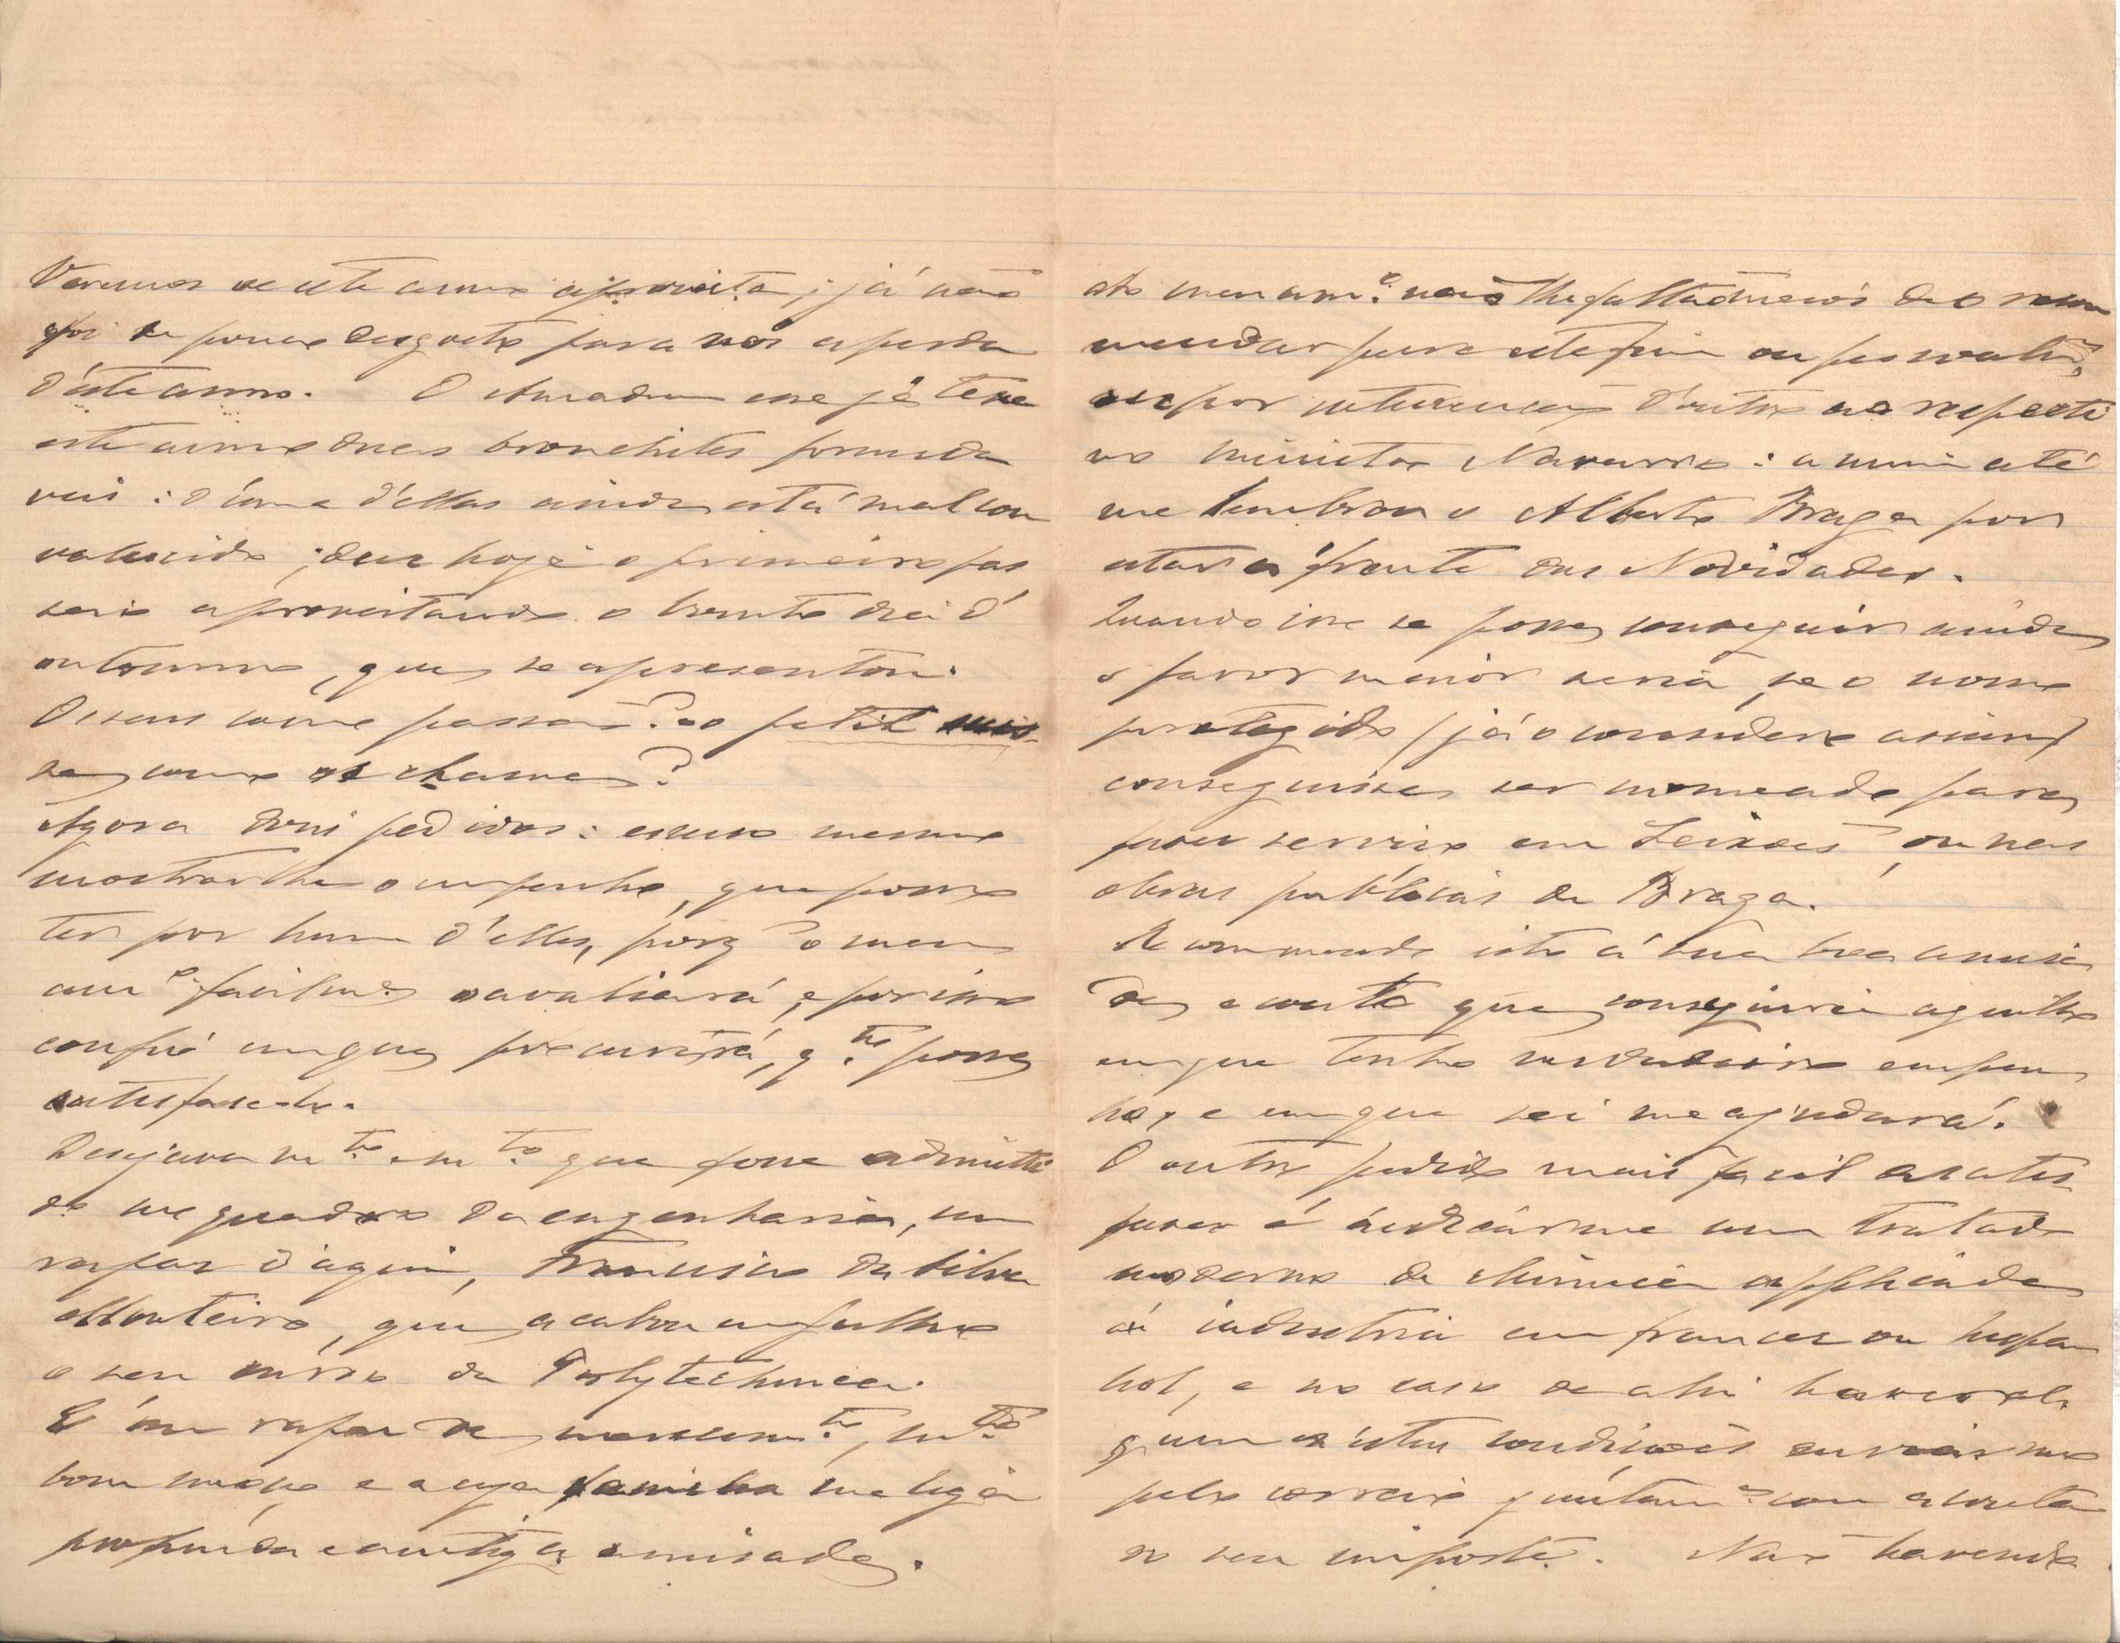 Veremos se este anno aproveita; já não
foi de pouco desgosto para nós a perda
d'este anno. O Amadeu esse já teve
este anno duas bronchites formida
veis: d'uma d'ellas ainda está mal con
valescido; deu hoje o primeiro pas
seio aproveitando o bonito dia d'
outomno, que se apresentou.
Os seus como passam? e o petit
como se chama?
Agora dois pedidos: escuso mesmo
mostrar-lhe o empenho, que posso
ter por hum d'elles, porq o meu
am.º facilm.e o avaliará, e por isso
confio em que procurará, q.to possa
satisfase-lo.
Desejava m.to e m.to que fosse admitti
do no quadro da engenharia, um
rapaz d'aqui, Francisco da Silva
Monteiro, que acabou em julho
o seu curso da Polytechnica.
E' um rapaz de merecim.to, m.to
bom moço e a cuja familia me liga
profunda e antiga amisade.
Ao meu am.º não lhe faltam meios de o recom
mendar para este fim ou pessoalm.e
ou por intervenção d'outro ao respecti
vo ministro Navarro: a mim até
me lembrou o Alberto Braga por
estar á frente das Novidades.
Quando isso se possa conseguir ainda
o favor maior seria, se o nosso
protegido (já o considero assim)
conseguisse ser nomeado para
fazer serviço em Leixões, ou nas
obras publicas de Braga.
Recommendo isto á sua boa amisa
de, e conto que conseguirá aquillo
em que tenho verdadeiro empen
ho, e em que sei me ajudará.
O outro pedido mais facil a satis
fazer é indicar-me um tratado
moderno de chimica applicada
á industria em francez ou hespan
hol, e no caso de ahi haver al
gum n'estas condições enviar-mo
pelo correio juntam.e com a conta
do seu importe. Não havendo